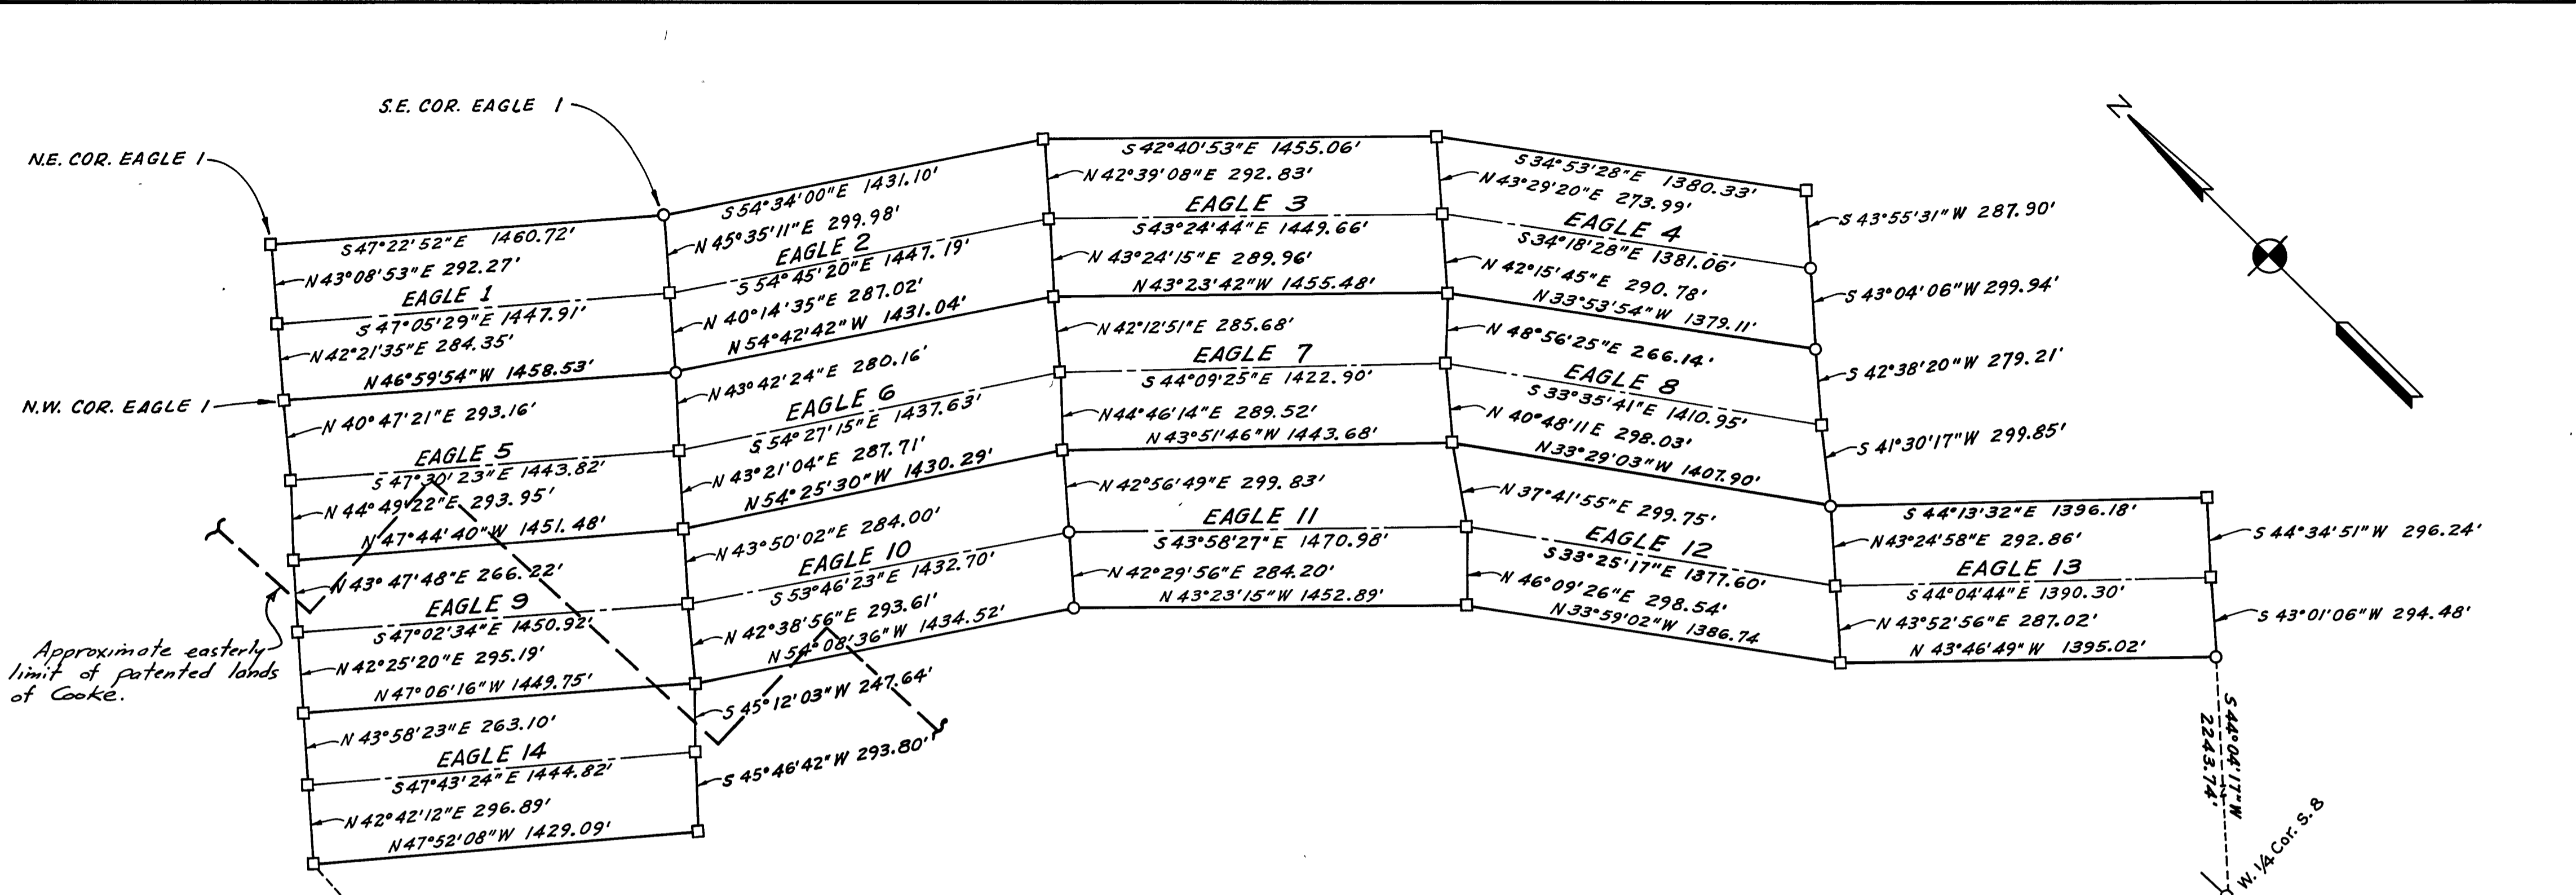 S.E. COR. EAGLE 1
N.E. COR. EAGLE 1
N.W. COR. EAGLE 1
S 47°22'52"E 1460.72'
N 43°08'53"E 292.27'
EAGLE 1
S 47°05'29"E 1447.91'
N 42°21'35"E 284.35'
N 46°59'54"W 1458.53'
N 40°47'21"E 293.16'
EAGLE 5
S 47°30'23"E 1443.82'
N 44°49'22"E 293.95'
N 47°44'40"W 1451.48'
N 43°47'48"E 266.22'
EAGLE 9
S 47°02'34"E 1450.92'
N 42°25'20"E 295.19'
N 47°06'16"W 1449.75'
N 43°58'23"E 263.10'
EAGLE 14
S 47°43'24"E 1444.82'
N 42°42'12"E 296.89'
N 47°52'08"W 1429.09'
Approximate easterly
limit of patented lands
of Cooke.
S 54°34'00"E 1431.10'
N 45°35'11"E 299.98'
EAGLE 2
S 54°45'20"E 1447.19'
N 40°14'35"E 287.02'
N 54°42'42"W 1431.04'
N 43°42'24"E 280.16'
EAGLE 6
S 54°27'15"E 1437.63'
N 43°21'04"E 287.71'
N 54°25'30"W 1430.29'
N 43°50'02"E 284.00'
EAGLE 10
S 53°46'23"E 1432.70'
N 42°38'56"E 293.61'
N 54°08'36"W 1434.52'
S 45°12'03"W 247.64'
S 45°46'42"W 293.80'
S 42°40'53"E 1455.06'
N 42°39'08"E 292.83'
EAGLE 3
S 43°24'44"E 1449.66'
N 43°24'15"E 289.96'
N 43°23'42"W 1455.48'
N 42°12'51"E 285.68'
EAGLE 7
S 44°09'25"E 1422.90'
N 44°46'14"E 289.52'
N 43°51'46"W 1443.68'
N 42°56'49"E 299.83'
EAGLE 11
S 43°58'27"E 1470.98'
N 42°29'56"E 284.20'
N 43°23'15"W 1452.89'
S 34°53'28"E 1380.33'
N 43°29'20"E 273.99'
EAGLE 4
S 34°18'28"E 1381.06'
N 42°15'45"E 290.78'
N 33°53'54"W 1379.11'
N 48°56'25"E 266.14'
EAGLE 8
S 33°35'41"E 1410.95'
N 40°48'11"E 298.03'
N 33°29'03"W 1407.90'
N 37°41'55"E 299.75'
EAGLE 12
S 33°25'17"E 1377.60'
N 46°09'26"E 298.54'
N 33°59'02"W 1386.74
S 43°55'31"W 287.90'
S 43°04'06"W 299.94'
S 42°38'20"W 279.21'
S 41°30'17"W 299.85'
S 44°13'32"E 1396.18'
N 43°24'58"E 292.86'
EAGLE 13
S 44°04'44"E 1390.30'
N 43°52'56"E 287.02'
N 43°46'49"W 1395.02'
S 44°34'51"W 296.24'
S 43°01'06"W 294.48'
S 44°04'17"W
2243.74'
W. 1/4 Cor. S. 8
N